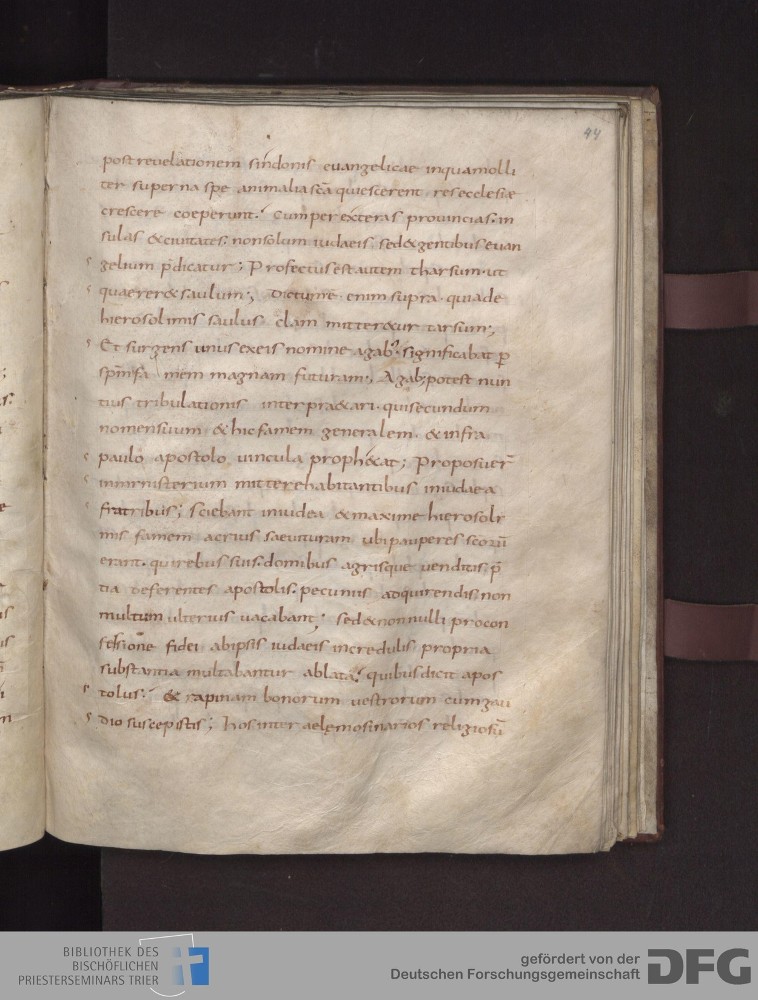 44
post revelationem sindonis euangelicae inqua molli
ter superna spe animalia scā quiescerent res ecclesiae
crescere coeperunt. Cum per exteras prouincias. in
sulas & ciuitates. non solum iudaeis sed & gentibus euan
gelium p̄dicatur; Profectus est autem tharsum. ut
quaerer& saulum; Dictum ē enim supra. quia de
hierosolimis saulus clam mitter&ur tarsum;
Et surgens unus ex eis nomine agab; significabat p
sp̄m fa mem magnam futuram; Agab; potest nun
tius tribulationis interpr&ari. qui secundum
nomen suum & hic famem generalem. & infra
paulo apostolo uincula proph&at; Proposuer̄
in ministerium mittere habitantibus in iudaea
fratribus; Sciebant in iudea & maxime hierosoli
mis famem acrius saeuituram ubi pauperes scorū
erant. qui rebus suis. domibus agrisque uenditis. p̄
tia deferentes apostolis. pecuniis adquirendis. non
multum ulterius uacabant; sed & nonnulli pro con
fessione fidei ab ipsis iudaeis incredulis propria
substantia multabantur ablata. quibus dicit apos
tolus. & rapinam bonorum uestrorum cum gau
dio suscepistis; Hos inter aelemosinarios religiosū
BIBLIOTHEK DES
BISCHÖFLICHEN
PRIESTERSEMINARS TRIER
gefördert von der
Deutschen Forschungsgemeinschaft
DFG